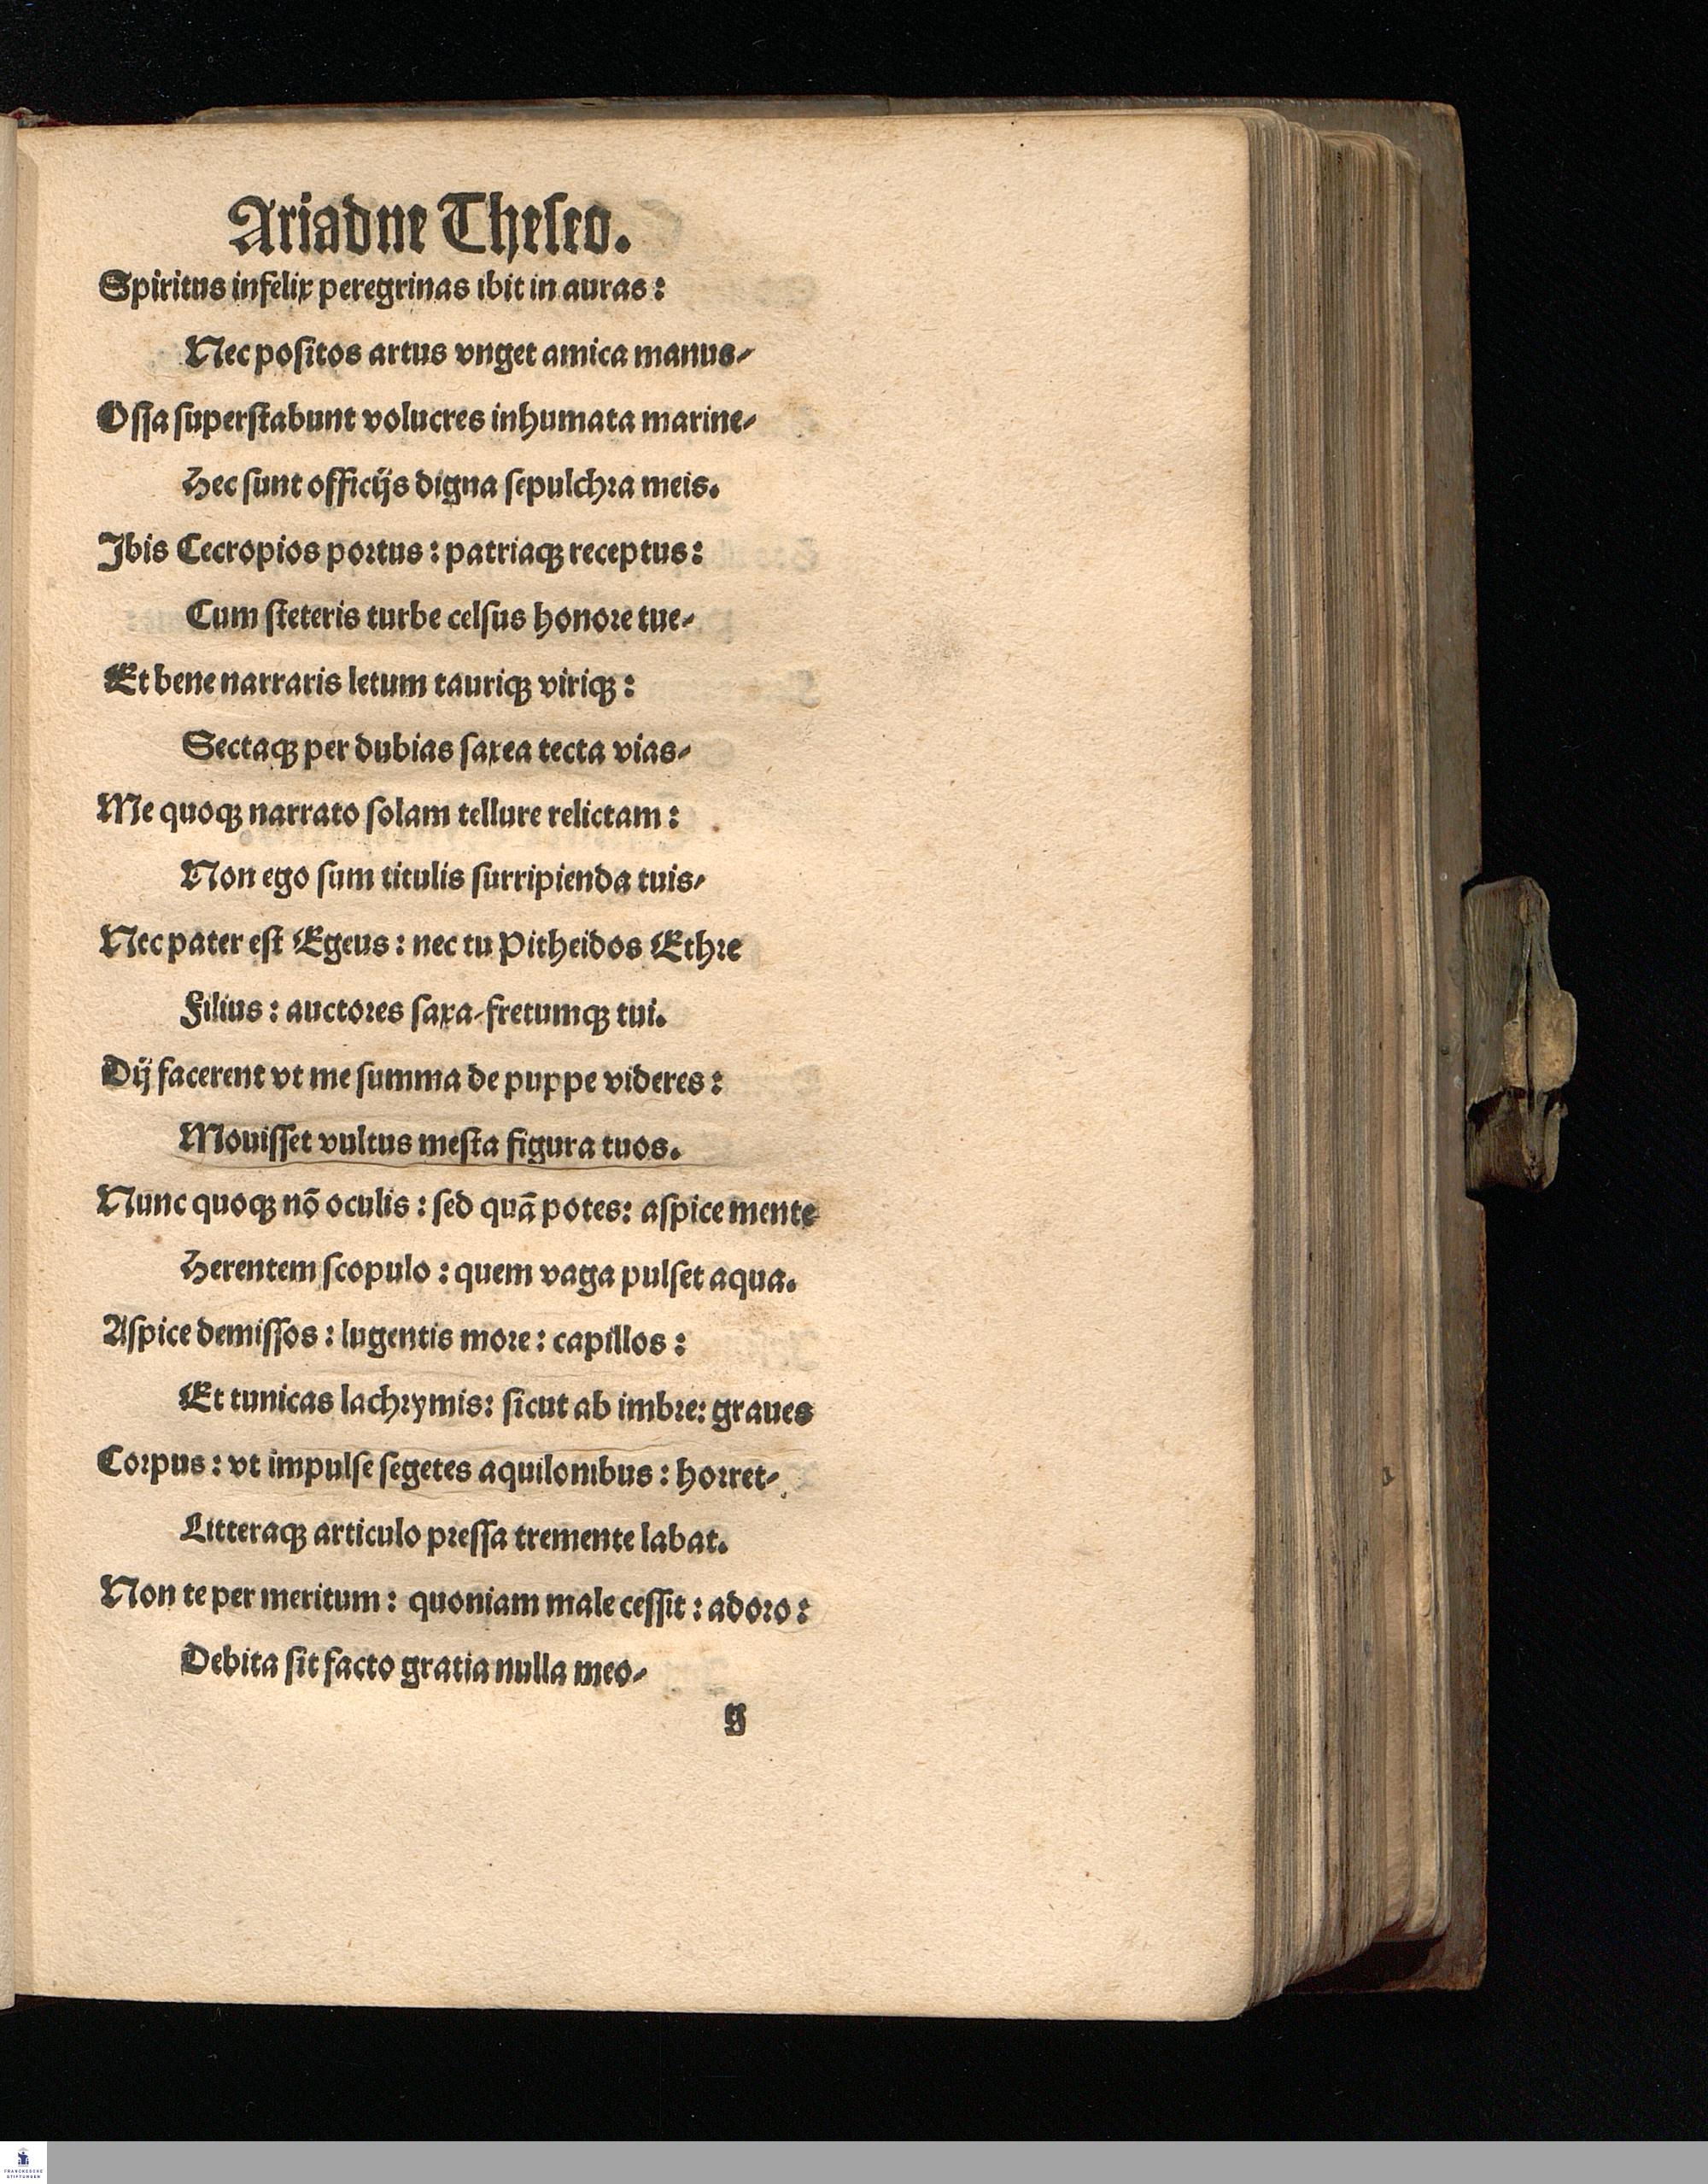 Ariadne Theseo.
Spiritus infelix peregrinas ibit in auras:
Nec positos artus vnget amica manus/
Ossa superstabunt volucres inhumata marine/
Hec sunt officijs digna sepulchra meis.
Ibis Cecropios portus: patriaqꝫ receptus:
Cum steteris turbe celsus honore tue/
Et bene narraris letum tauriqꝫ viriqꝫ:
Sectaqꝫ per dubias saxea tecta vias/
Me quoqꝫ narrato solam tellure relictam:
Non ego sum titulis surripienda tuis/
Nec pater est Egeus: nec tu Pitheidos Ethre
Filius: auctores saxa/fretumqꝫ tui.
Dij facerent vt me summa de puppe videres:
Mouisset vultus mesta figura tuos.
Nunc quoqꝫ nō oculis: sed quā potes: aspice mente
Herentem scopulo: quem vaga pulset aqua.
Aspice demissos: lugentis more: capillos:
Et tunicas lachrymis: sicut ab imbre: graues
Corpus: vt impulse segetes aquilonibus: horret/
Litteraqꝫ articulo pressa tremente labat.
Non te per meritum: quoniam male cessit: adoro:
Debita sit facto gratia nulla meo/
g
FRANCKESCHE
STIFTUNGEN